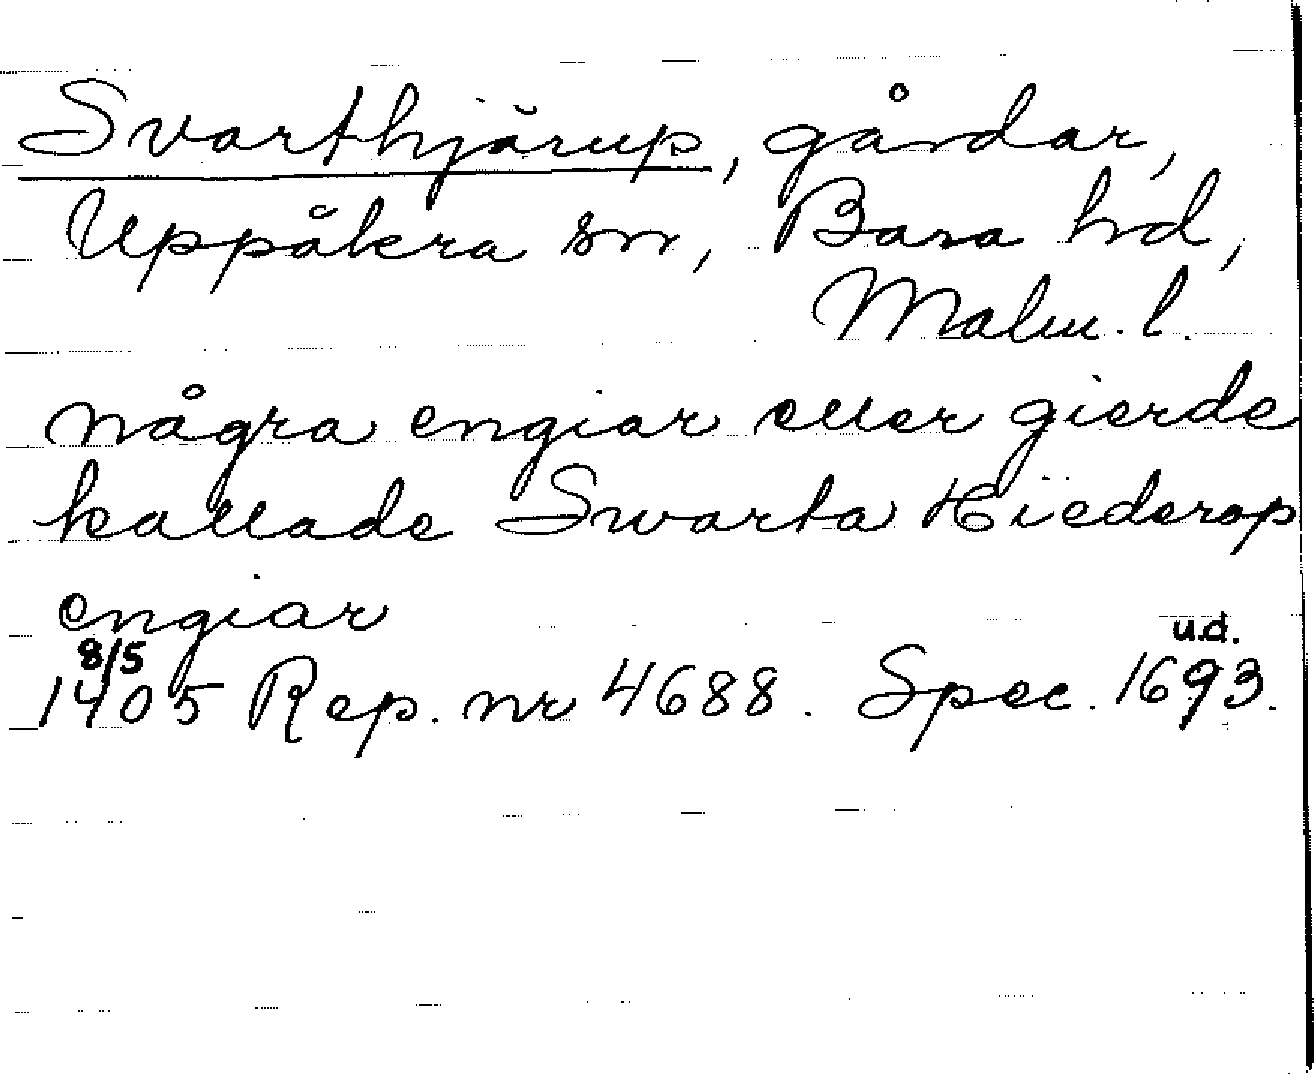 Svarthjärup, gårdar,
Uppåkra sn, Bara hd,
Malm. l.
några engiar eller gierde
kallade Swarta Hiederop
engiar
8/5 u.d.
1405 Rep. nr 4688. Spec. 1693.